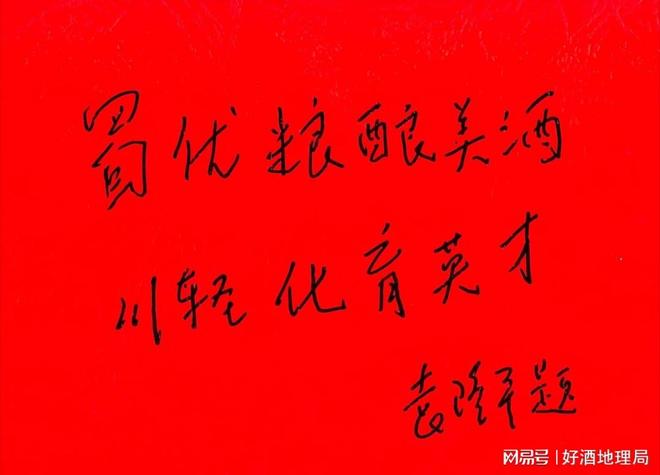 蜀优粮酿美酒
川轻化育英才
袁隆平题
网易号 | 好酒地理局